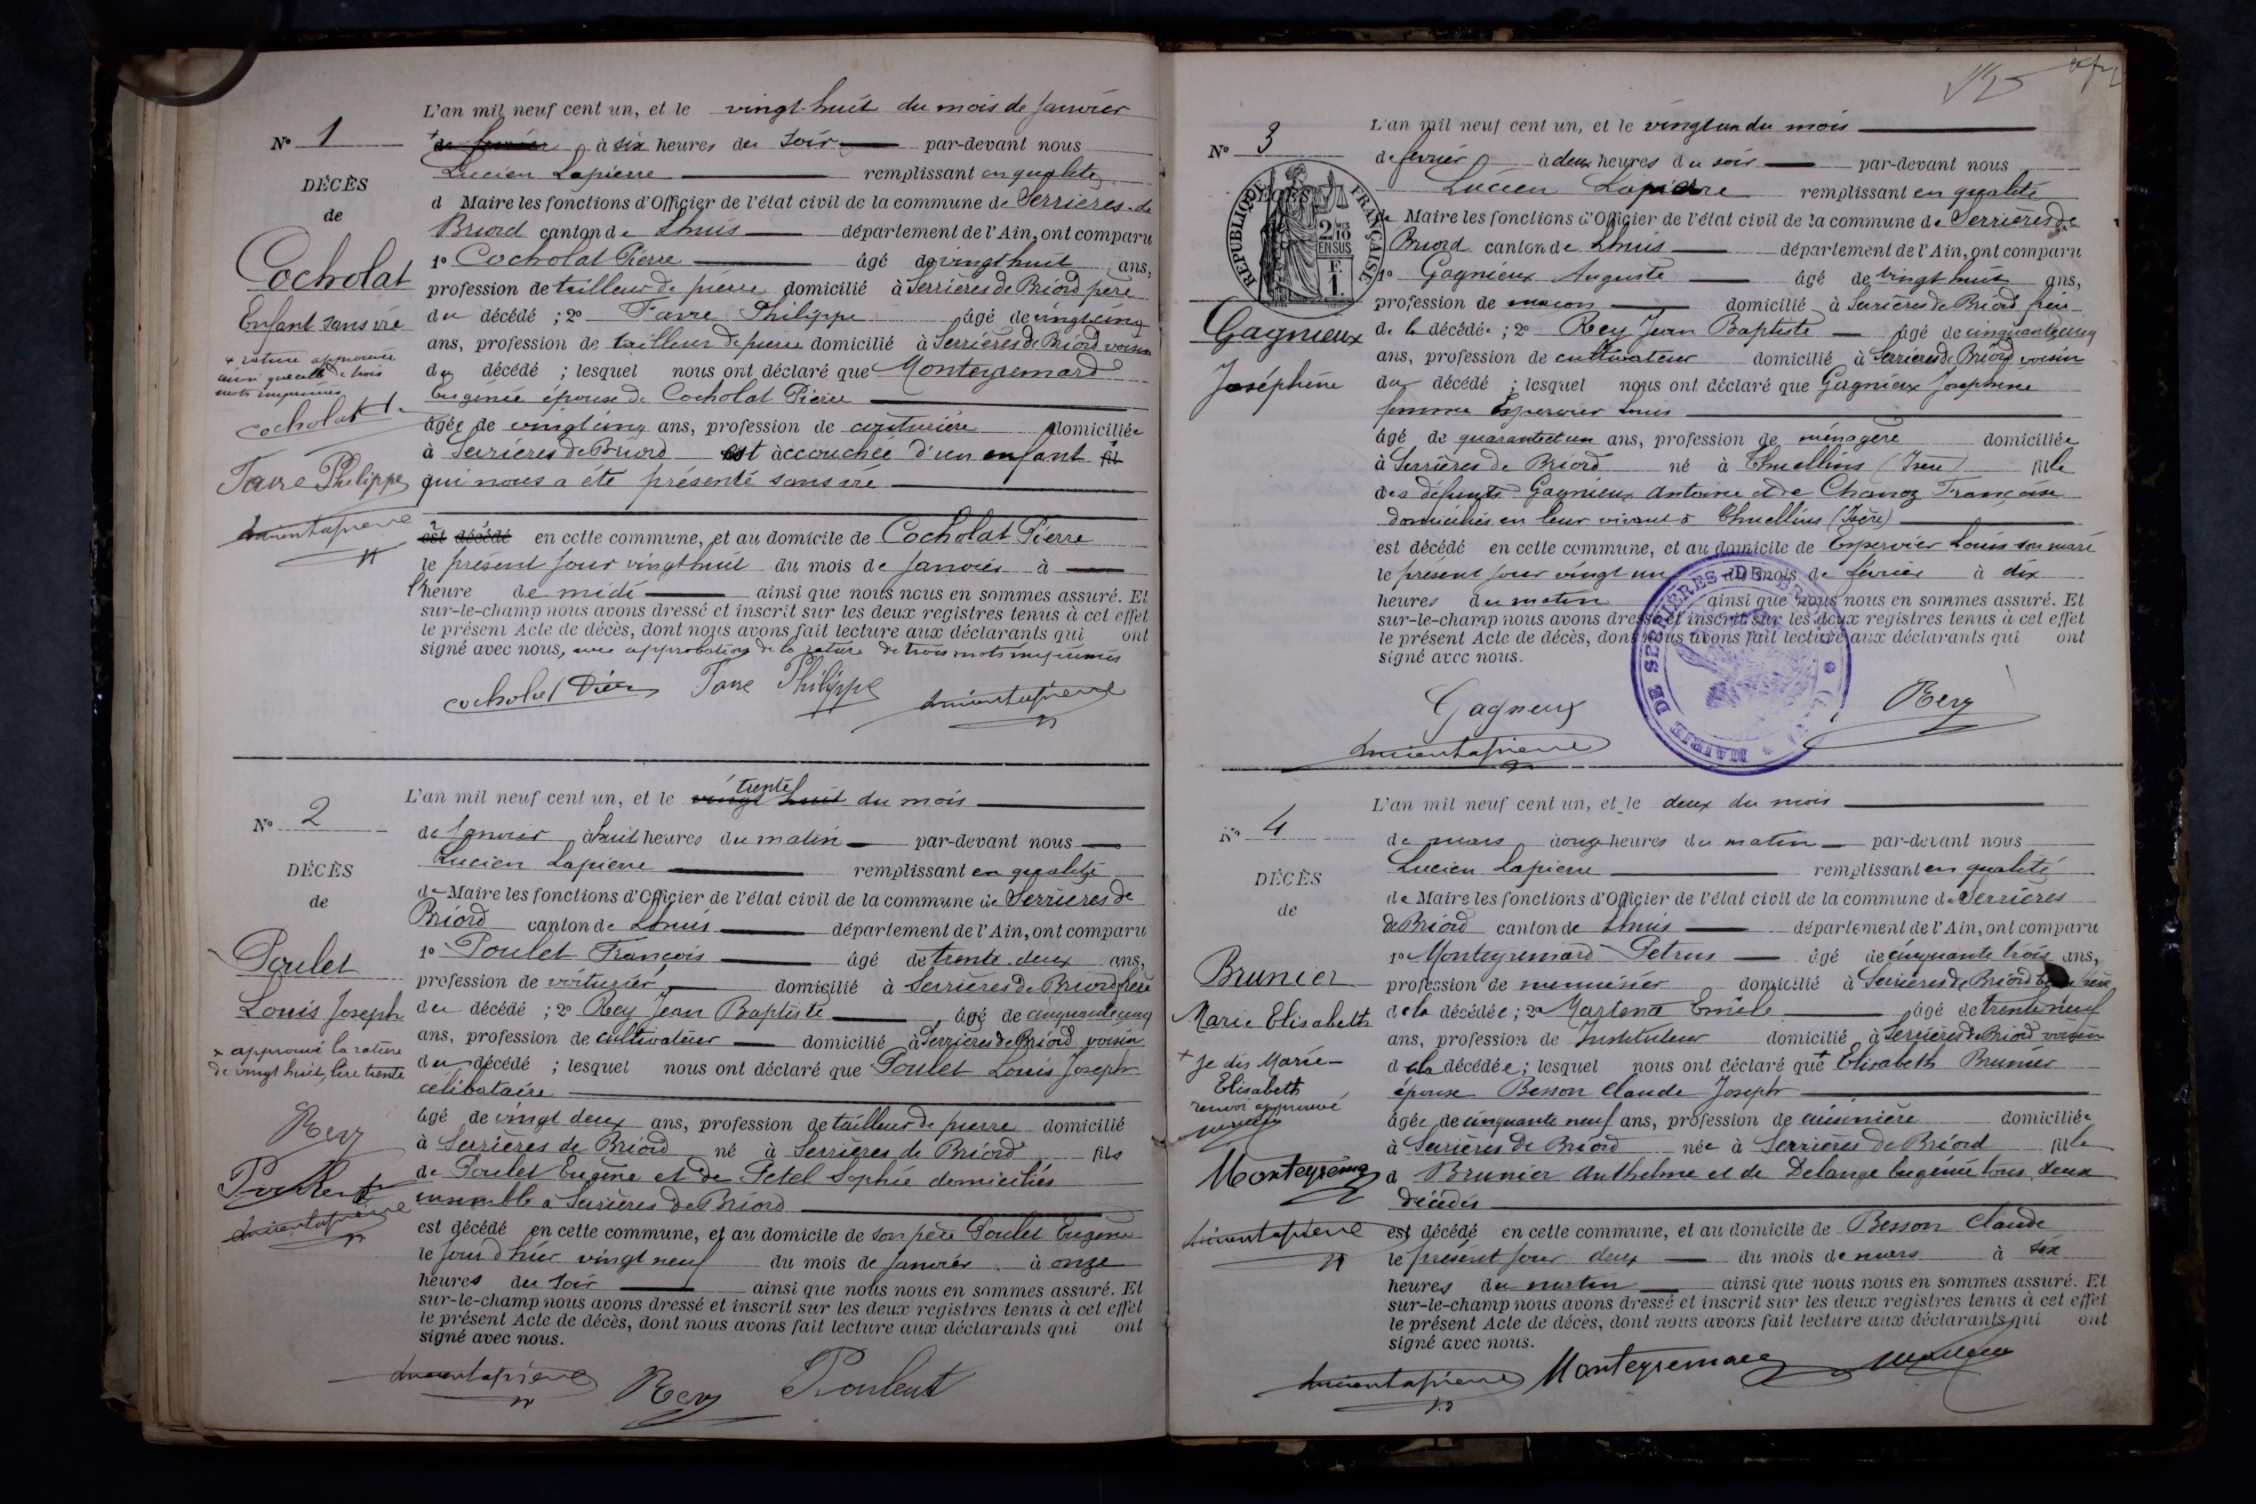 L'an mil neuf cent un, et le vingt-huit du mois de Janvier
Nº 1
à six heures du soir par-devant nous
DÉCÈS
Lucien Lapierre remplissant en qualité
de
d Maire les fonctions d'Officier de l'état civil de la commune de Serrières-de
Briord canton de Lhuis département de l'Ain, ont comparu
Cocholat
1º Cocholat Pierre âgé de vingt huit ans,
profession de tailleur de pierre domicilié à Serrières de Briord père
Enfant sans vie
du décédé ; 2º Favre Philippe âgé de vingt cinq
ans, profession de tailleur de pierre domicilié à Serrières de Briord voisin
+ rature approuvée
ainsi que celle de trois
mots imprimés
du décédé ; lesquel nous ont déclaré que Monteyremard
Eugénie épouse de Cocholat Pierre
cocholat
âgée de vingt cinq ans, profession de couturière domiciliée
à Serrières de Briord est accouchée d'un enfant fil
Favre Philippe
qui nous a été présenté sans vie
Lucien Lapierre
est décédé en cette commune, et au domicile de Cocholat Pierre
le présent jour vingt huit du mois de Janvier à
l'heure de midi ainsi que nous nous en sommes assuré. Et
sur-le-champ nous avons dressé et inscrit sur les deux registres tenus à cet effet
le présent Acte de décès, dont nous avons fait lecture aux déclarants qui ont
signé avec nous, avec approbation de la rature de trois mots imprimés
cocholat Pierre Favre Philippe Lucien Lapierre
L'an mil neuf cent un, et le vingt huit trente du mois
Nº 2
de Janvier à huit heures du matin par-devant nous
Lucien Lapierre remplissant en qualité
DÉCÈS
de
de Maire les fonctions d'Officier de l'état civil de la commune de Serrières de
Briord canton de Lhuis département de l'Ain, ont comparu
Poulet
1º Poulet François âgé de trente deux ans,
profession de voiturier domicilié à Serrières de Briord frère
Louis Joseph
du décédé ; 2º Rey Jean Baptiste âgé de cinquante cinq
ans, profession de cultivateur domicilié à Serrières de Briord voisin
x approuvé la rature
de vingt huit, lire trente
du décédé ; lesquel nous ont déclaré que Poulet Louis Joseph
célibataire
âgé de vingt deux ans, profession de tailleur de pierre domicilié
Rey
à Serrières de Briord né à Serrières de Briord fils
Poulent
de Poulet Eugène et de Petel Sophie domiciliés
Lucien Lapierre
ensemble à Serrières de Briord
est décédé en cette commune, et au domicile de son père Poulet Eugène
le jour d'hier vingt neuf du mois de Janvier à onze
heures du soir ainsi que nous nous en sommes assuré. Et
sur-le-champ nous avons dressé et inscrit sur les deux registres tenus à cet effet
le présent Acte de décès, dont nous avons fait lecture aux déclarants qui ont
signé avec nous.
Lucien Lapierre Rey Poulent
L'an mil neuf cent un, et le vingt un du mois
Nº 3
de février à deux heures du soir par-devant nous
Lucien Lapierre remplissant en qualité
RÉPUBLIQUE FRANÇAISE
2/10 EN SUS
F. 1.
de Maire les fonctions d'Officier de l'état civil de la commune de Serrières de
Briord canton de Lhuis département de l'Ain, ont comparu
1º Gagnieux Auguste âgé de vingt huit ans,
profession de maçon domicilié à Serrières de Briord frère
Gagnieux
de la décédée ; 2º Rey Jean Baptiste âgé de cinquante cinq
ans, profession de cultivateur domicilié à Serrières de Briord voisin
Joséphine
du décédé ; lesquel nous ont déclaré que Gagnieux Joséphine
femme Espervier Louis
âgé de quarante et un ans, profession de ménagère domiciliée
à Serrières de Briord né à Thuellins (Isère) fille
des défunts Gagnieux Antoine et de Chanoz Françoise
domiciliés en leur vivant à Thuellins (Isère)
est décédé en cette commune, et au domicile de Espervier Louis son mari
le présent jour vingt un du mois de février à dix
heures du matin ainsi que nous nous en sommes assuré. Et
sur-le-champ nous avons dressé et inscrit sur les deux registres tenus à cet effet
le présent Acte de décès, dont nous avons fait lecture aux déclarants qui ont
signé avec nous.
MAIRIE DE SERRIÈRES-DE-BRIORD
Gagneux Rey
Lucien Lapierre
L'an mil neuf cent un, et le deux du mois
Nº 4
de mars à onze heures du matin par-devant nous
Lucien Lapierre remplissant en qualité
DÉCÈS
de
de Maire les fonctions d'Officier de l'état civil de la commune de Serrières
de Briord canton de Lhuis département de l'Ain, ont comparu
Brunier
1º Monteyremard Petrus âgé de cinquante trois ans,
profession de menuisier domicilié à Serrières de Briord
Marie Elisabeth
de la décédée ; 2º Martena Emile âgé de trente neuf
ans, profession de Instituteur domicilié à Serrières de Briord voisin
+ Je dis Marie-
Elisabeth
renvoi approuvé
de la décédée ; lesquel nous ont déclaré que + Elisabeth Brunier
épouse Besson Claude Joseph
âgée de cinquante neuf ans, profession de cuisinière domiciliée
à Serrières de Briord née à Serrières de Briord fille
Monteyremard
d Brunier Anthelme et de Delange Eugénie tous deux
décédés
Lucien Lapierre
est décédé en cette commune, et au domicile de Besson Claude
le présent jour deux du mois de mars à six
heures du matin ainsi que nous nous en sommes assuré. Et
sur-le-champ nous avons dressé et inscrit sur les deux registres tenus à cet effet
le présent Acte de décès, dont nous avons fait lecture aux déclarants qui ont
signé avec nous.
Lucien Lapierre Monteyremard